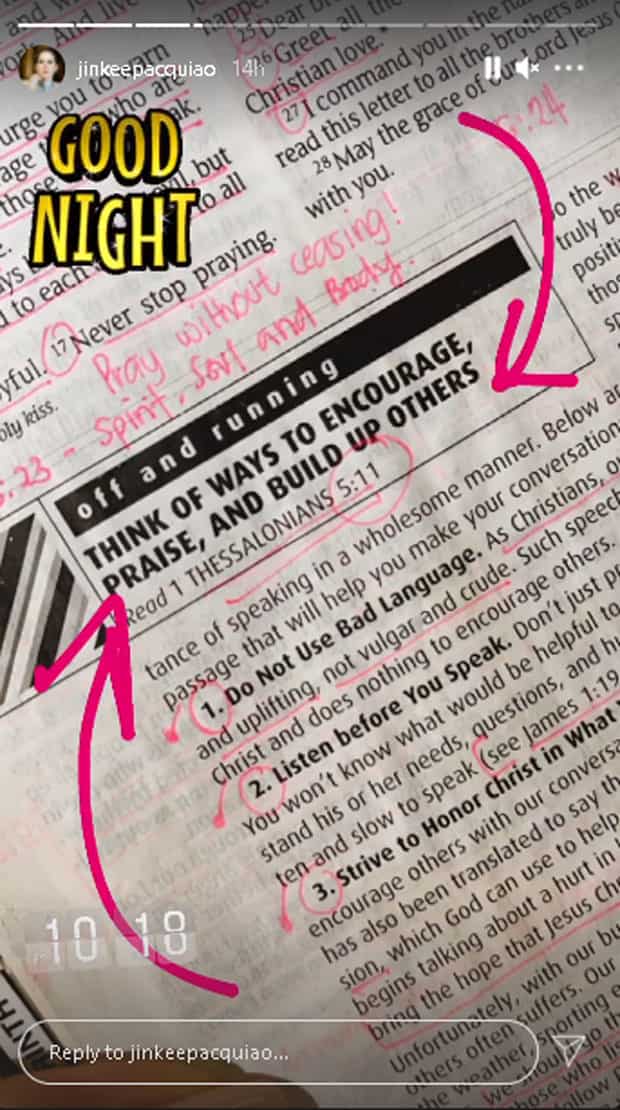 jinkeepacquiao 14h
GOOD
NIGHT
urge you to
who are
those
but
to all
to each
17 Never stop praying.
oly kiss.
Greet all the
Christian love.
27 I command you in the
read this letter to all the brothers
28 May the grace of Lord Jesus
with you.
:24
Pray without ceasing!
5:23 - Spirit, Soul and Body.
off and running
THINK OF WAYS TO ENCOURAGE,
PRAISE, AND BUILD UP OTHERS
Read 1 THESSALONIANS 5:11
tance of speaking in a wholesome manner. Below
passage that will help you make your conversation
1. Do Not Use Bad Language. As Christians,
and uplifting, not vulgar and crude. Such speech
christ and does nothing to encourage others.
2. Listen before You Speak. Don't just
You won't know what would be helpful to
stand his or her needs, questions, and
ten and slow to speak (see James 1:19
3. Strive to Honor Christ in What
encourage others with our conversa
has also been translated to say
sion, which God can use to help
begins talking about a hurt in
bring the hope that Jesus
Unfortunately, with our
others often suffers. Our
the weather, sporting
those who
follow
truly be
positi
10 18
Reply to jinkeepacquiao...